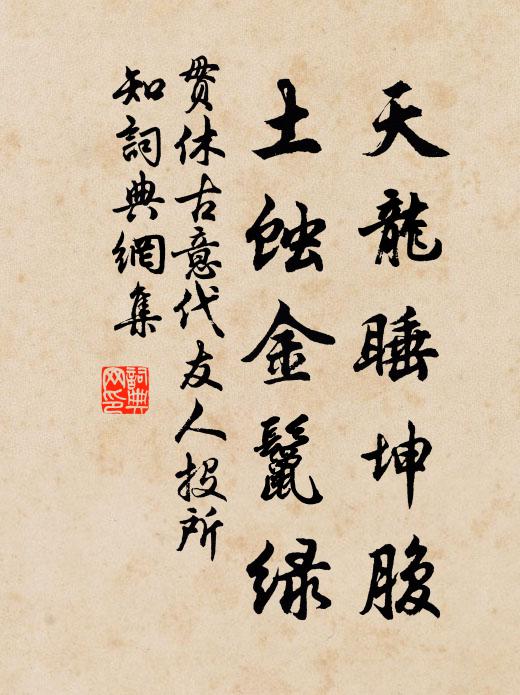 天龍睡坤腹
土蝕金鬣綠
貫休古意代友人投所
知詞典網集
詞典網印